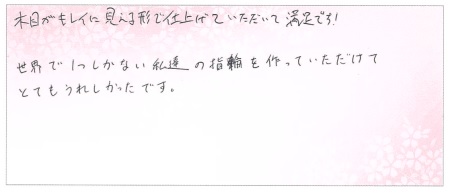 木目がキレイに見える形で仕上げていただいて満足です!
世界で1つしかない私達の指輪を作っていただけて
とてもうれしかったです。